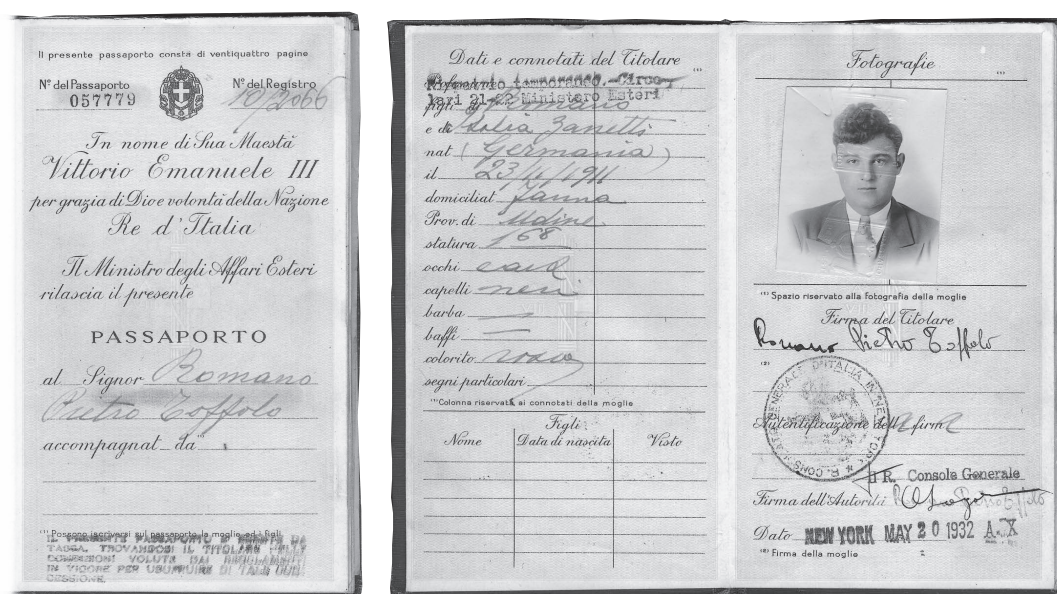 Il presente passaporto consta di ventiquattro pagine
Nº del Passaporto
057779
Nº del Registro
10/2066
In nome di Sua Maestà
Vittorio Emanuele III
per grazia di Dio e volontà della Nazione
Re d'Italia
Il Ministro degli Affari Esteri
rilascia il presente
PASSAPORTO
al Signor Romano
Pietro Toffolo
accompagnat da
(1) Possono iscriversi sul passaporto la moglie ed i figli
IL PRESENTE PASSAPORTO È ESENTE DA
TASSA, TROVANDOSI IL TITOLARE NELLE
CONDIZIONI VOLUTE DAI REGOLAMENTI
IN VIGORE PER USUFRUIRE DI TALE CON-
CESSIONE.
Dati e connotati del Titolare
(1)
temporaneo. Circo-
lari 21-22 Ministero Esteri
figli di Romano
e di Zanetti
nat (Germania)
il 23/4/1911
domiciliat Fanna
Prov. di Udine
statura 168
occhi
capelli neri
barba —
baffi —
colorito roseo
segni particolari
(1) Colonna riservata ai connotati della moglie
Figli
Nome
Data di nascita
Visto
Fotografie
(1)
(1) Spazio riservato alla fotografia della moglie
Firma del Titolare
Romano Pietro Toffolo
(2)
R. CONSOLATO GENERALE D'ITALIA IN NEW YORK
Autentificazione della firma
Il R. Console Generale
Firma dell'Autorità
Dato NEW YORK MAY 20 1932 A.X
(2) Firma della moglie